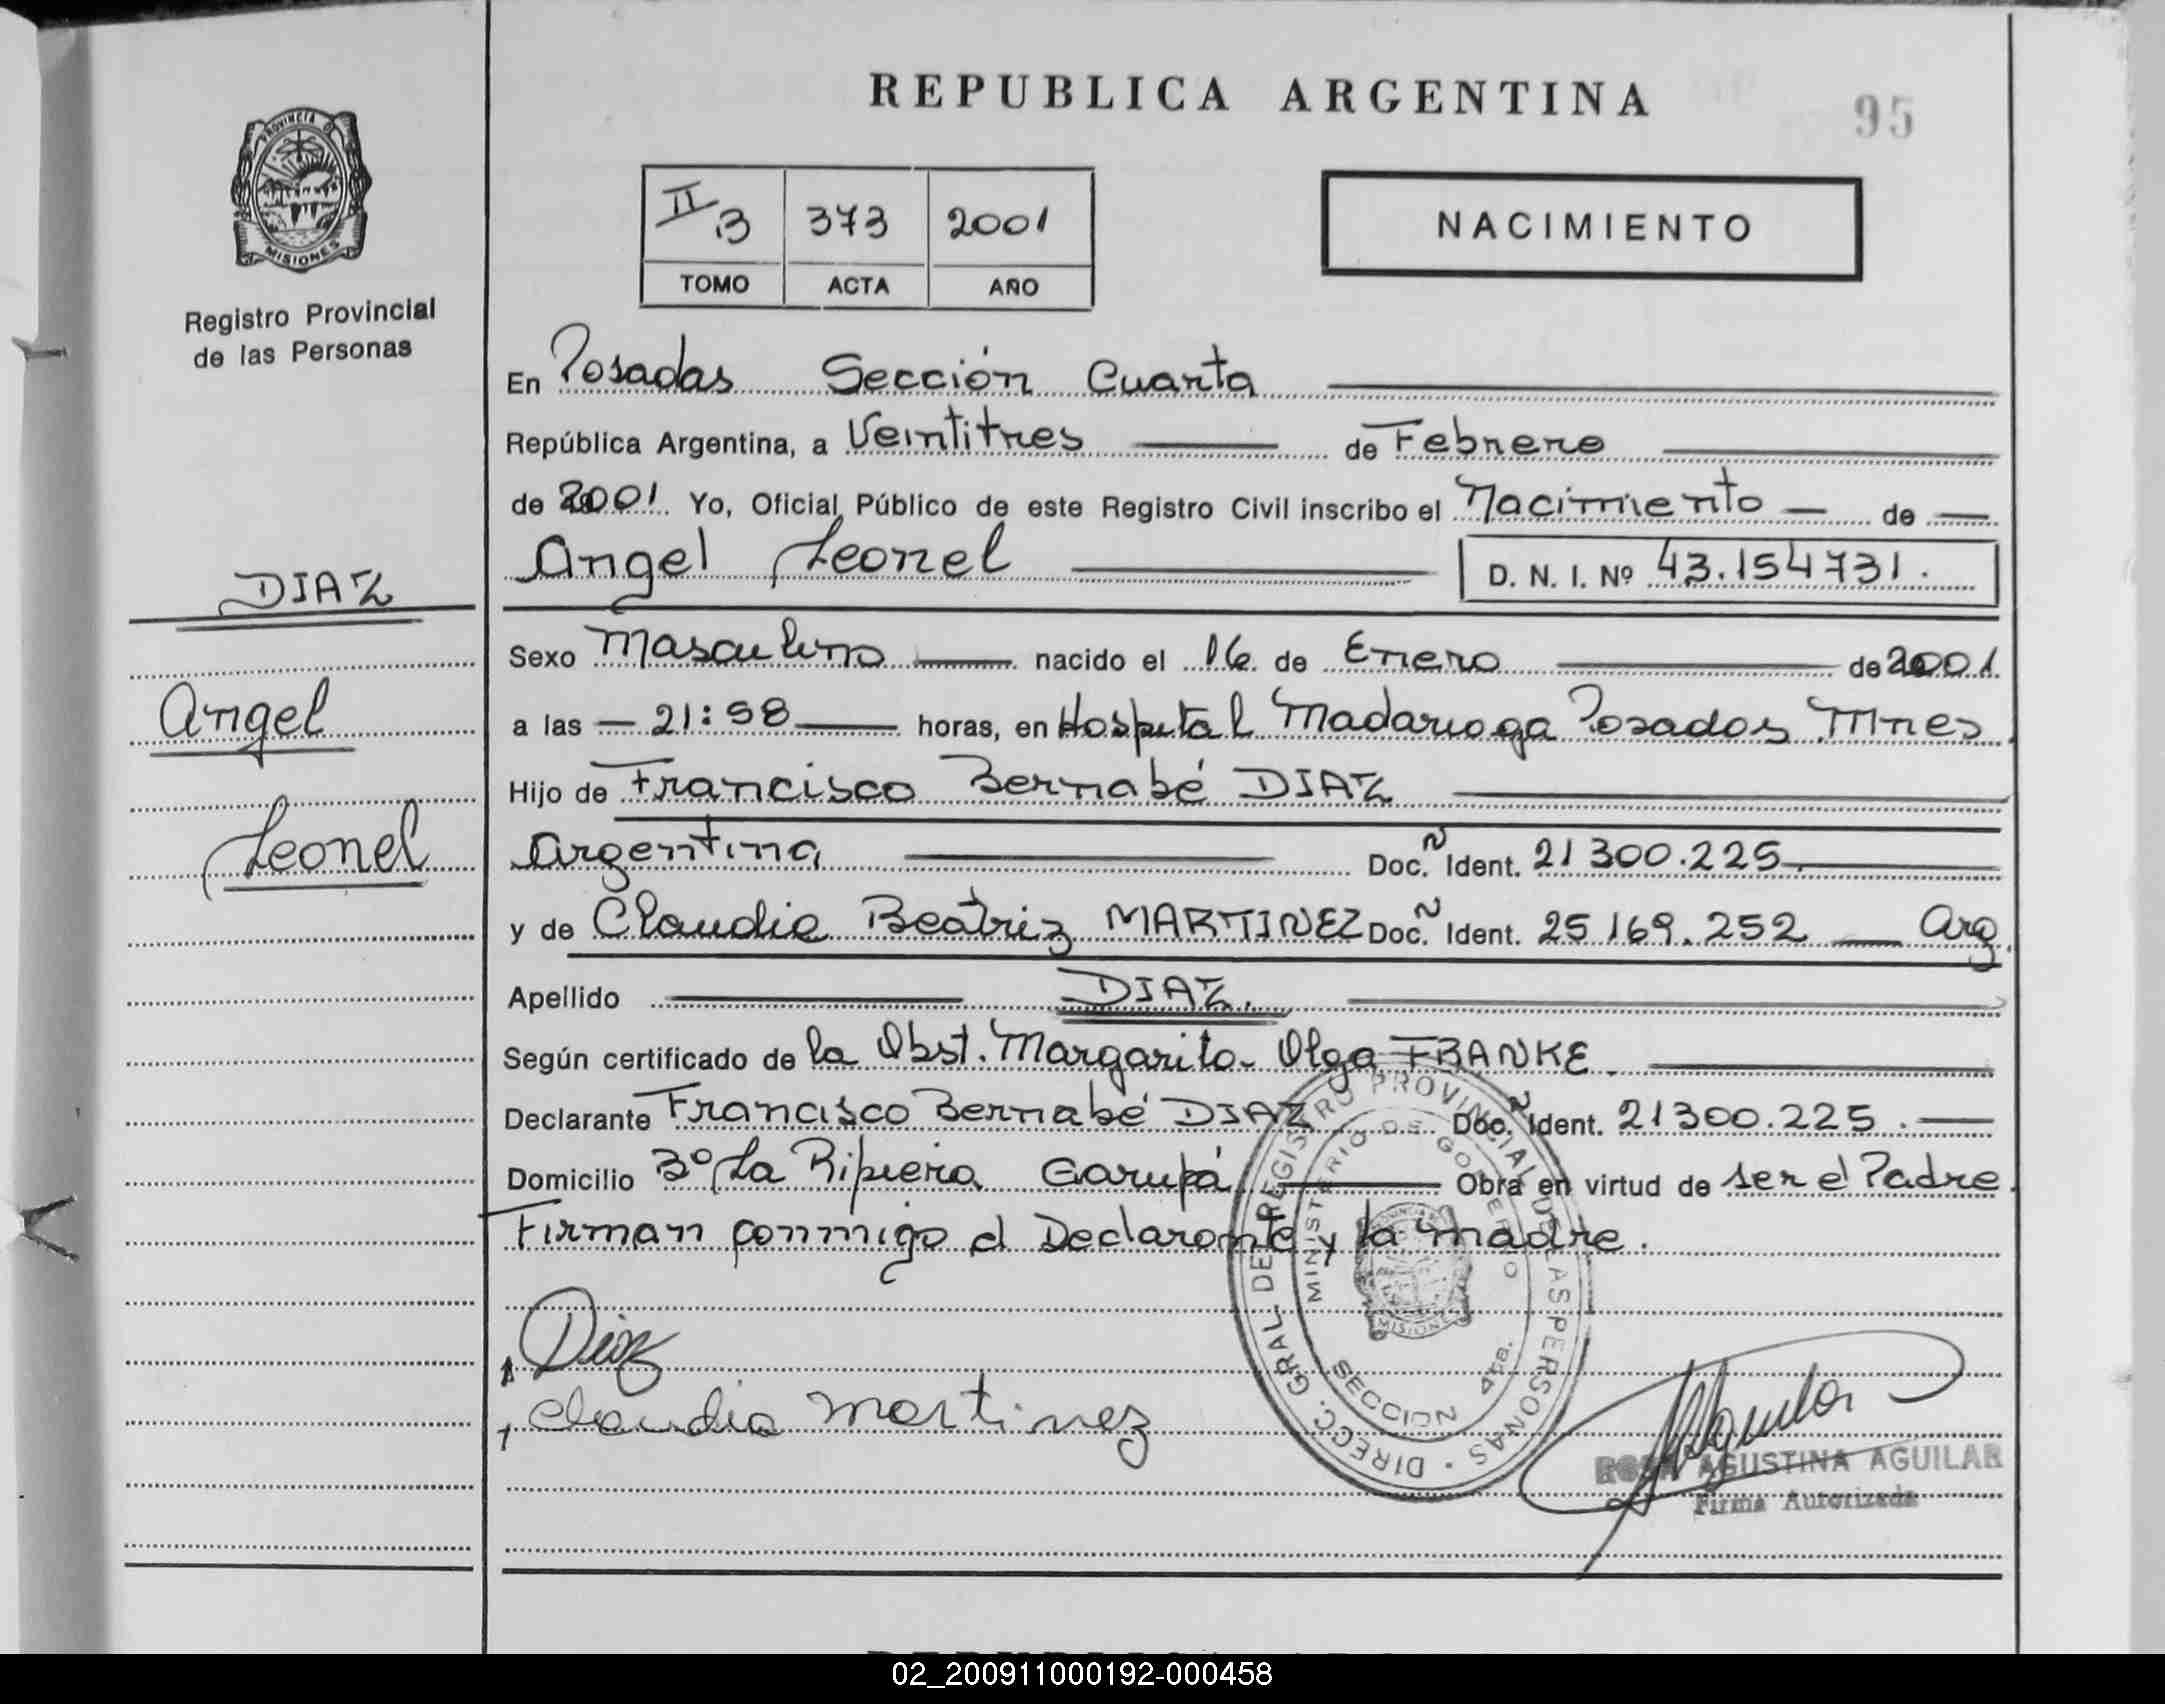 REPUBLICA ARGENTINA
95
PROVINCIA D
MISIONES
Registro Provincial
de las Personas
II/3 373 2001
TOMO ACTA AÑO
NACIMIENTO
En Posadas Sección Cuarta
República Argentina, a Veintitres de Febrero
de 2001. Yo, Oficial Público de este Registro Civil inscribo el Nacimiento de
Angel Leonel D. N. I. Nº 43.154731.
DIAZ
Angel
Leonel
Sexo Masculino nacido el 16 de Enero de 2001.
a las 21:58 horas, en Hospital Madariaga Posadas Mnes.
Hijo de Francisco Bernabé DIAZ
Argentina Doc. Ñ Ident. 21300.225.
y de Claudia Beatriz MARTINEZ Doc. Ñ Ident. 25169.252 Arg.
Apellido DIAZ.
Según certificado de la Obst. Margarita Olga FRANKE.
Declarante Francisco Bernabé DIAZ Doc. Ñ Ident. 21300.225.
Domicilio Bº La Ripiera Garupá Obra en virtud de ser el Padre.
Firman conmigo el Declarante y la madre.
DIRECC. GRAL DE REGISTRO PROVINCIAL DE LAS PERSONAS
MINISTERIO DE GOBIERNO
MISIONES
SECCION 4ta.
Diaz
Claudia Martinez
Aguilar
ROSA AGUSTINA AGUILAR
Firma Autorizada
02_200911000192-000458